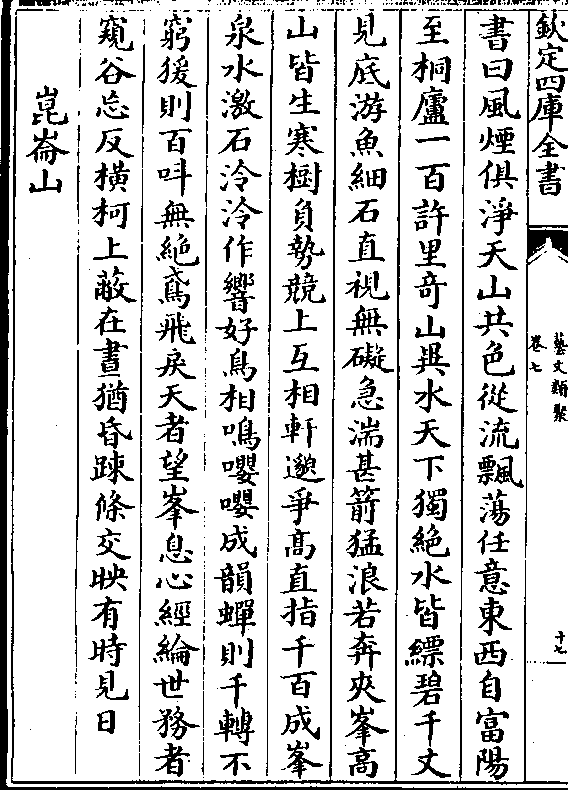 欽定四庫全書
藝文類聚
卷七
十七
書曰風煙俱淨天山共色從流飄蕩任意東西自富陽
至桐廬一百許里竒山異水天下獨絶水皆縹碧千丈
見底游魚細石直視無礙急湍甚箭猛浪若奔夾峯高
山皆生寒樹負勢競上互相軒邈爭髙直指千百成峯
泉水激石泠泠作響好鳥相鳴嚶嚶成韻蟬則千轉不
窮猨則百呌無絶鳶飛戾天者望峯息心經綸世務者
窺谷忘反橫柯上蔽在晝猶昏踈條交映有時見日
崑崙山